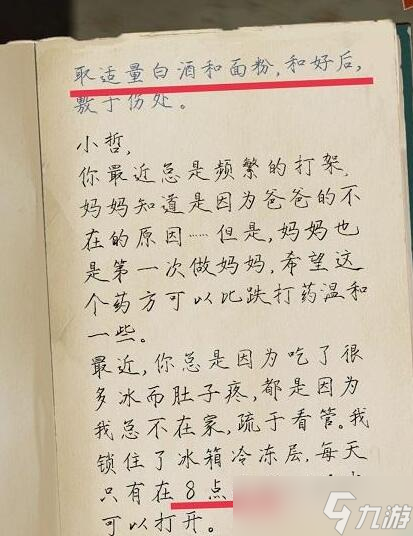 取适量白酒和面粉，和好后，
敷于伤处。
小哲，
你最近总是频繁的打架，
妈妈知道是因为爸爸的不
在的原因……但是，妈妈也
是第一次做妈妈，希望这
个药方可以比跌打药温和
一些。
最近，你总是因为吃了很
多冰而肚子疼，都是因为
我总不在家，疏于看管。我
锁住了冰箱冷冻层，每天
只有在8点
可以打开。
九游